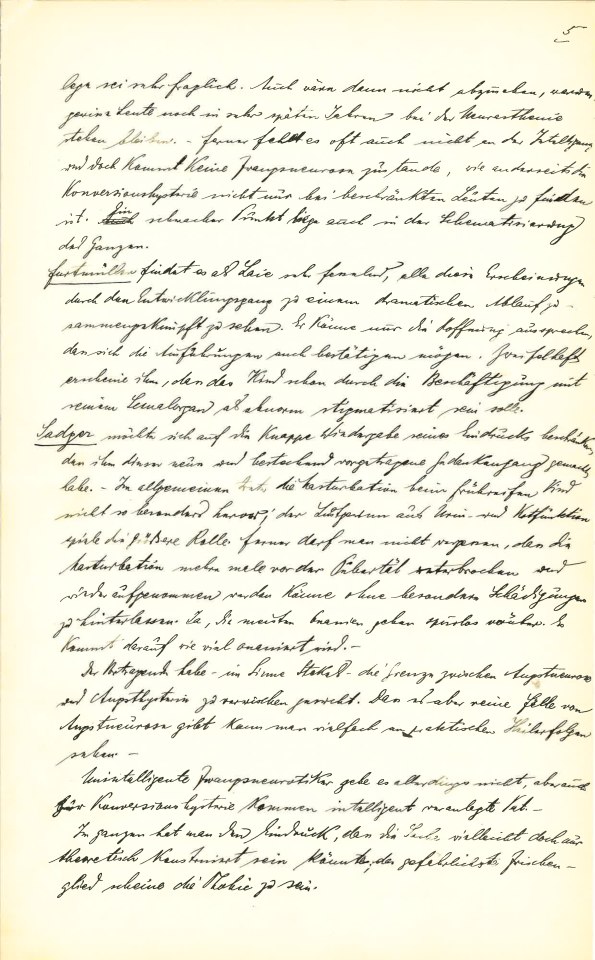 5
lage sei sehr fraglich. Auch wäre dann nicht abzusehen, warum
gewisse Leute noch in sehr späten Jahren bei der Neurasthenie
stehen bleiben. - ferner fehlt es oft auch nicht an der Intelligenz
und doch kommt keine Zwangsneurose zustande, wie anderseits die
Konversionshysterie nicht nur bei beschränkten Leuten zu finden
ist. Ein schwacher Punkt liege auch in der Schematisierung
des Ganzen.
Furtmüller findet es als Laie sehr fesselnd, alle diese Erscheinungen
durch den Entwicklungsgang zu einem dramatischen Ablauf zu-
sammengeknüpft zu sehen. Er könne nur die Hoffnung aussprechen,
dass sich die Aufstellungen auch bestätigen mögen. Zweifelhaft
erscheine ihm, dass das Kind schon durch die Beschäftigung mit
seinem Sexualorgan als abnorm stigmatisiert sein solle.
Sadger möchte sich auf die knappe Wiedergabe seines Eindrucks beschränken,
den ihm dieser neue und bestechend vorgetragene Gedankengang gemacht
habe. - Im allgemeinen trete die Masturbation beim frühreifen Kind
nicht so besonders hervor; der Lustgewinn aus Urin- und Kotfunktion
spiele die größere Rolle. Ferner darf man nicht vergessen, dass die
Masturbation mehrere male vor der Pubertät unterbrochen und
wieder aufgenommen werden könne ohne besondere Schädigungen
zu hinterlassen. Ja, die meisten Onanien gehen spurlos vorüber. Es
kommt darauf wie viel onaniert wird. -
Der Vortragende habe - im Sinne Stekels - die Grenze zwischen Angstneurose
und Angsthysterie zu verwischen gesucht. Dass es aber reine Fälle von
Angstneurosen gibt kann man vielfach an praktischen Heilerfolgen
sehen. -
Unintelligente Zwangsneurotiker gebe es allerdings nicht, aber auch
für Konversionshysterie kommen intelligent veranlagte Pat. -
Im ganzen hat man den Eindruck, dass die Sache vielleicht doch nur
theoretisch konstruiert sein könnte; das gefährlichste Zwischen-
glied scheine die Phobie zu sein.